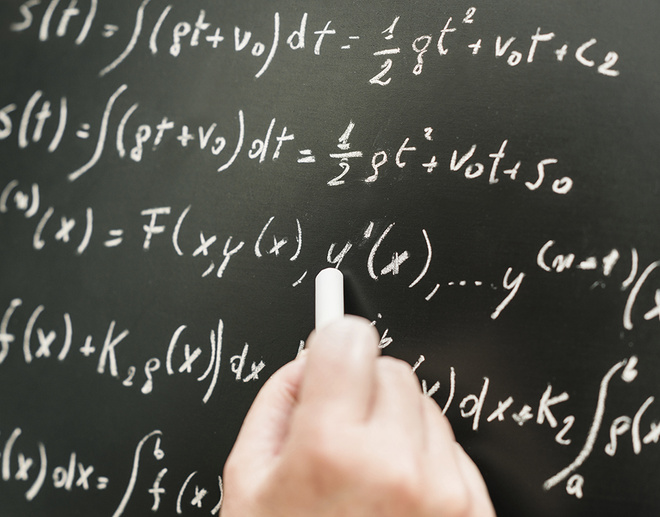 s(t) = ∫(gt + v₀)dt = 1/2 gt² + v₀t + c₂
s(t) = ∫(gt + v₀)dt = 1/2 gt² + v₀t + s₀
⁽ⁿ⁾(x) = F(x, y(x), y'(x), ... y⁽ⁿ⁻¹⁾(x
f(x) + K₂g(x))dx b x)dx + K₂ ∫ₐᵇ g(x
(x)dx = ∫ᵇ f(x)